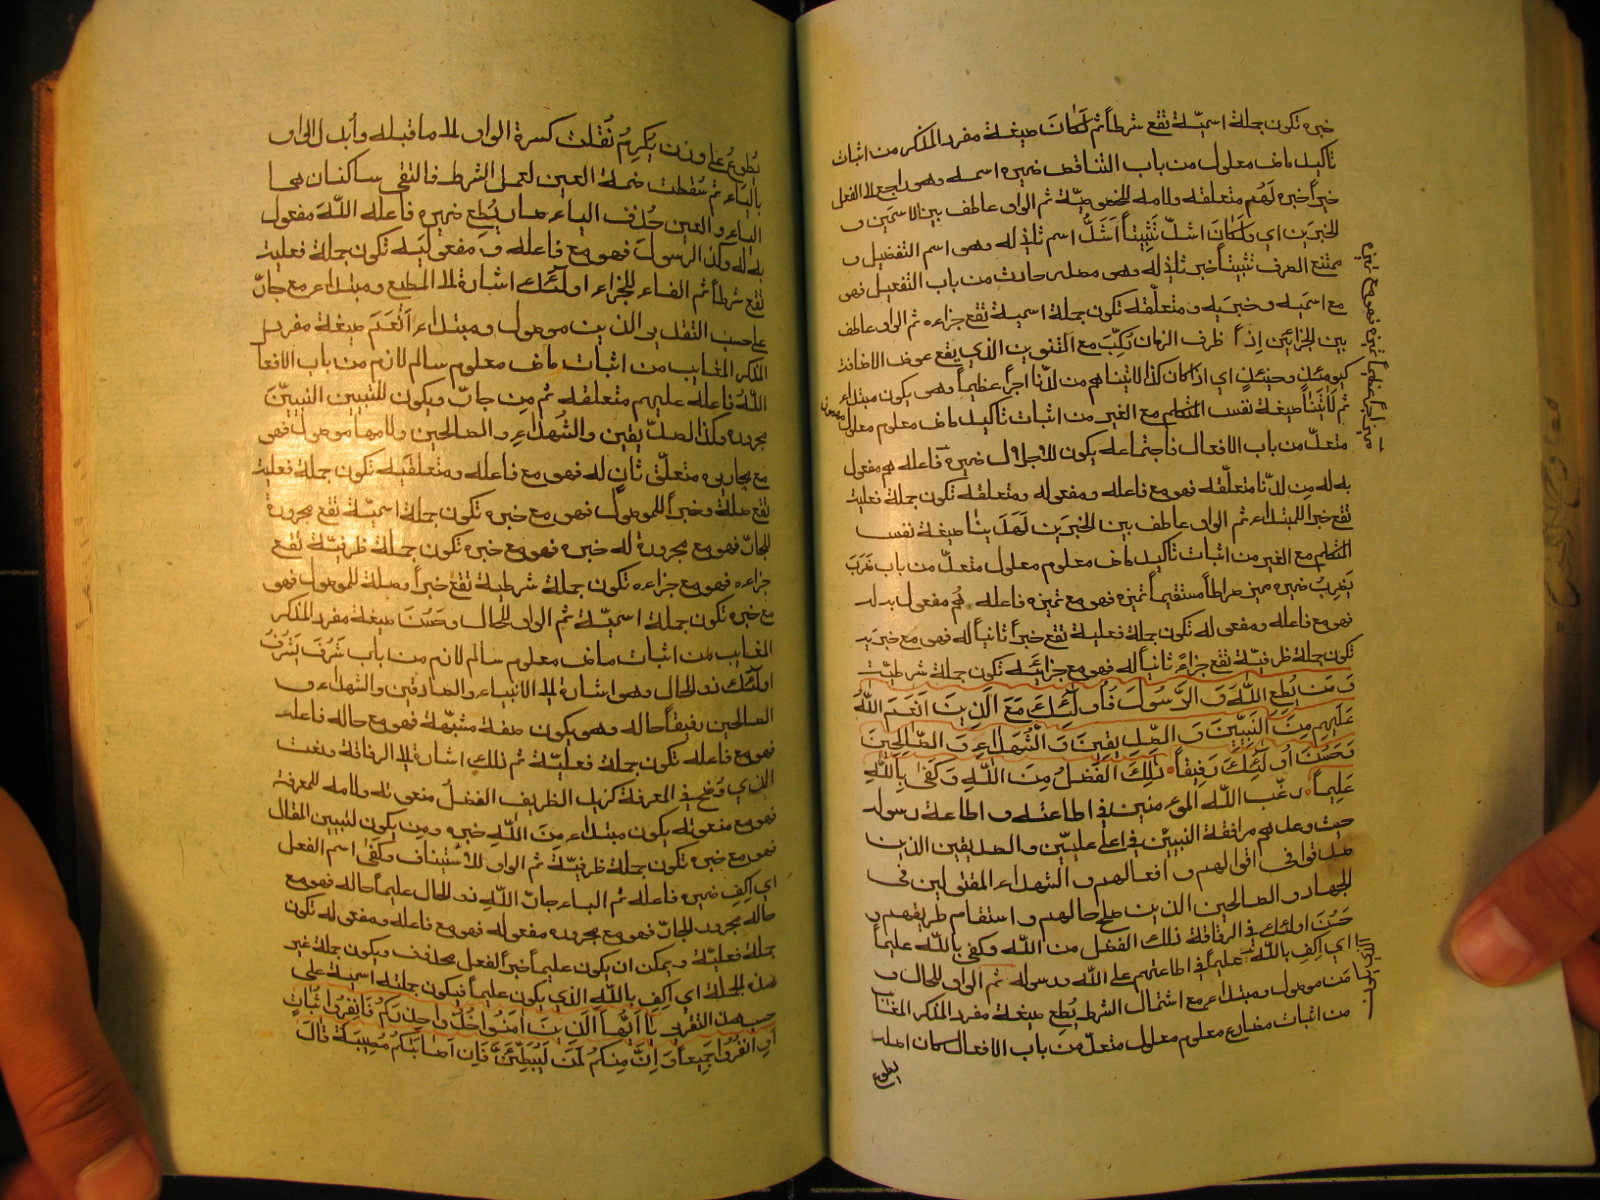 خبره تكون جملة اسميّة تقع شرطاً ثم لكان صيغة مفرد المذكر من اثبات
تاكيد ماض معلول من باب التناقص ضميره اسمه وهو راجع الى الفعل
خيراً خبره لهم متعلقه ولامه للخصوصيّة ثم الواو عاطف بين الاسمين و
الخبرين اي ولكان اشدّ تثبيتاً اشدُّ اسم تلذ له وهو اسم التفضيل و
ممتنع الصرف تثبيتاً خبر تلذ له وهو مصدر حادث من باب التفعيل فهو
مع اسميه وخبريه ومتعلّقه تكون جملة اسمية تقع جزاءه ثم الواو عاطف
بين الجزائين اِذاً ظرف الزمان ركّب مع التنوين الذي يقع عوض الاضافة
كيومئذٍ وحينئذٍ اي اذا كان كذا لاتيناهم من لدنّا اجراً عظيماً وهو يكون مبتداء
ثم لاٰتينا صيغة نفس المتكلم مع الغير من اثبات تاكيد ماض معلوم معلول
متعدّ من باب الافعال فاجتماعه يكون للاجلال ضميره فاعله هم مفعول
به له مِن لدنّا متعلّقه فهو مع فاعله ومفعوله ومتعلقه تكون جملة فعلية
تقع خبراً للمبتداء ثم الواو عاطف بين الخبرين لَهَدَيْنَا صيغة نفس
المتكلم مع الغير من اثبات تاكيد ماض معلوم معلول متعدّ من باب ضَرَبَ
يَضرِبُ ضميره مميز صراطاً مستقيماً تميزه فهو مع تميزه فاعله هُم مفعول به له
فهو مع فاعله ومفعوله تكون جملة فعلية تقع خبراً ثانياً له فهو مع خبريه
تكون جملة ظرفيّة تقع جزاءً ثانياً له فهو مع جزائيه تكون جملة شرطيّة
وَمَن يُطِعِ اللّٰهَ وَالرَّسُولَ فَأُولٰئِكَ مَعَ الَّذِينَ اَنْعَمَ اللّٰهُ
عَلَيْهِم مِنَ النَّبِيِّينَ وَالصِّدِّيقِينَ وَالشُّهَدَاءِ وَالصَّالِحِينَ
وَحَسُنَ اُولٰئِكَ رَفِيقاً ذٰلِكَ الْفَضْلُ مِنَ اللّٰهِ وَكَفىٰ بِاللّٰهِ
عَلِيماً رغّب اللّٰه المؤمنين في اطاعته واطاعة رسوله
حيث وعدهم مرافقة النبيّين في اعلى عليّين والصديقين الذين
صدقوا في اقوالهم وافعالهم والشهداء المقتولين في
الجهاد والصالحين الذين صلح حالهم واستقام طريقهم و
حَسُنَ اولئك في الرفاقة ذلك الفضل من اللّٰه وكفى باللّٰه عليماً
اي اكِف باللّٰه عليماً في اطاعتهم على اللّٰه ورسوله ثم الواو للحال و
مَن موصول ومبتداء مع اشتمال الشرط يُطِعِ صيغة مفرد المذكر المغايب
من اثبات مضارع معلوم معلول متعدّ من باب الافعال كان اصله
يطوع
يُطْوِعُ على وزن يُكرِمُ نُقلت كسرة الواو الى ما قبله وأبدل الواو
بالياء ثم سُقطت ضمة العين لعمل الشرط فالتقى ساكنان هما
الياء والعين حُذف الياء صار يُطِع ضميره فاعله اللّٰهَ مفعول
به له وكذا الرسول فهو مع فاعله و مفعوليه تكون جملة فعلية
تقع شرطاً ثم الفاء للجزاء اولئك اشارة الى المطيع ومبتداء مع جارّ
على حسب التقدير الذين موصول ومبتداء أَنْعَمَ صيغة مفرد
المذكر المغايب من اثبات ماض معلوم سالم لازم من باب الافعال
اللّٰهُ فاعله عليهم متعلقه ثم مِن جارّ ويكون للتبيين النبيّنَ
مجروره وكذا الصدّيقين والشهداء والصالحين ولامها موصول فهو
مع مجاريره متعلّق ثانٍ له فهو مع فاعله ومتعلقيه تكون جملة فعلية
تقع صلة وخبراً للموصول فهو مع خبره تكون جملة اسميّة تقع مجرورة
للجارّ فهو مع مجروره له خبره فهو مع خبره تكون جملة ظرفيّة تقع
جزاءه فهو مع جزاءه تكون جملة شرطية تقع خبراً وصلة للموصول فهو
مع خبره تكون جملة اسميّة ثم الواو للحال وحَسُنَ صيغة مفرد المذكر
المغايب من اثبات ماض معلوم سالم لازم من باب شَرُفَ يَشرُفُ
اولئك ذو الحال وهو اشارة الى الانبياء والصادقين والشهداء و
الصالحين رفيقاً حاله وهو يكون صفة مشبّهة فهو مع حاله فاعله
فهو مع فاعله تكون جملة فعليّة ثم ذلك اشارة الى الرفاقة ونعت
الذي وُضع في المعرفة كزيد الظريف الفضلُ منعوته ولامه للمعرفة
فهو مع منعوته يكون مبتداء مِنَ اللّٰهِ خبره ومِن يكون لتبيين المقال
فهو مع خبره تكون جملة ظرفيّة ثم الواو للاستيناف وكفىٰ اسم الفعل
اي اكِفِ ضميره فاعله ثم الباء جارّ اللّٰهِ ذو الحال عليماً حاله فهو مع
حاله مجرور للجارّ فهو مع مجروره مفعوله فهو مع فاعله ومفعوله تكون
جملة فعليّة ويمكن ان يكون عليماً خبراً لفعل محذوف ويكون جملة غير
هذه الجملة اي اكِفِ بِاللّٰهِ الذي يكون عليماً فيكون جملته اسمية على
حسب هذا التقرير يَا اَيُّهَا الَّذِينَ اٰمَنُوا خُذُوا حِذْرَكُمْ فَانْفِرُوا ثُبَاتٍ
اَوِ انْفِرُوا جَمِيعاً وَاِنَّ مِنْكُمْ لَمَن لَيُبَطِّئَنَّ فَاِن اَصَابَتْكُمْ مُصِيبَةٌ قَالَ